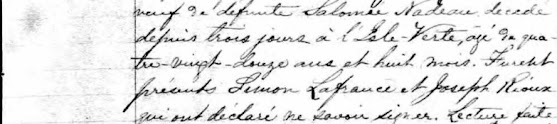 veuf de defunte Salomée Nadeau, décédé
depuis trois jours à l'Isle-Verte, âgé de qua-
tre-vingt-douze ans et huit mois. Furent
présents Simon Lafrance et Joseph Rioux
qui ont déclaré ne savoir signer. Lecture faite